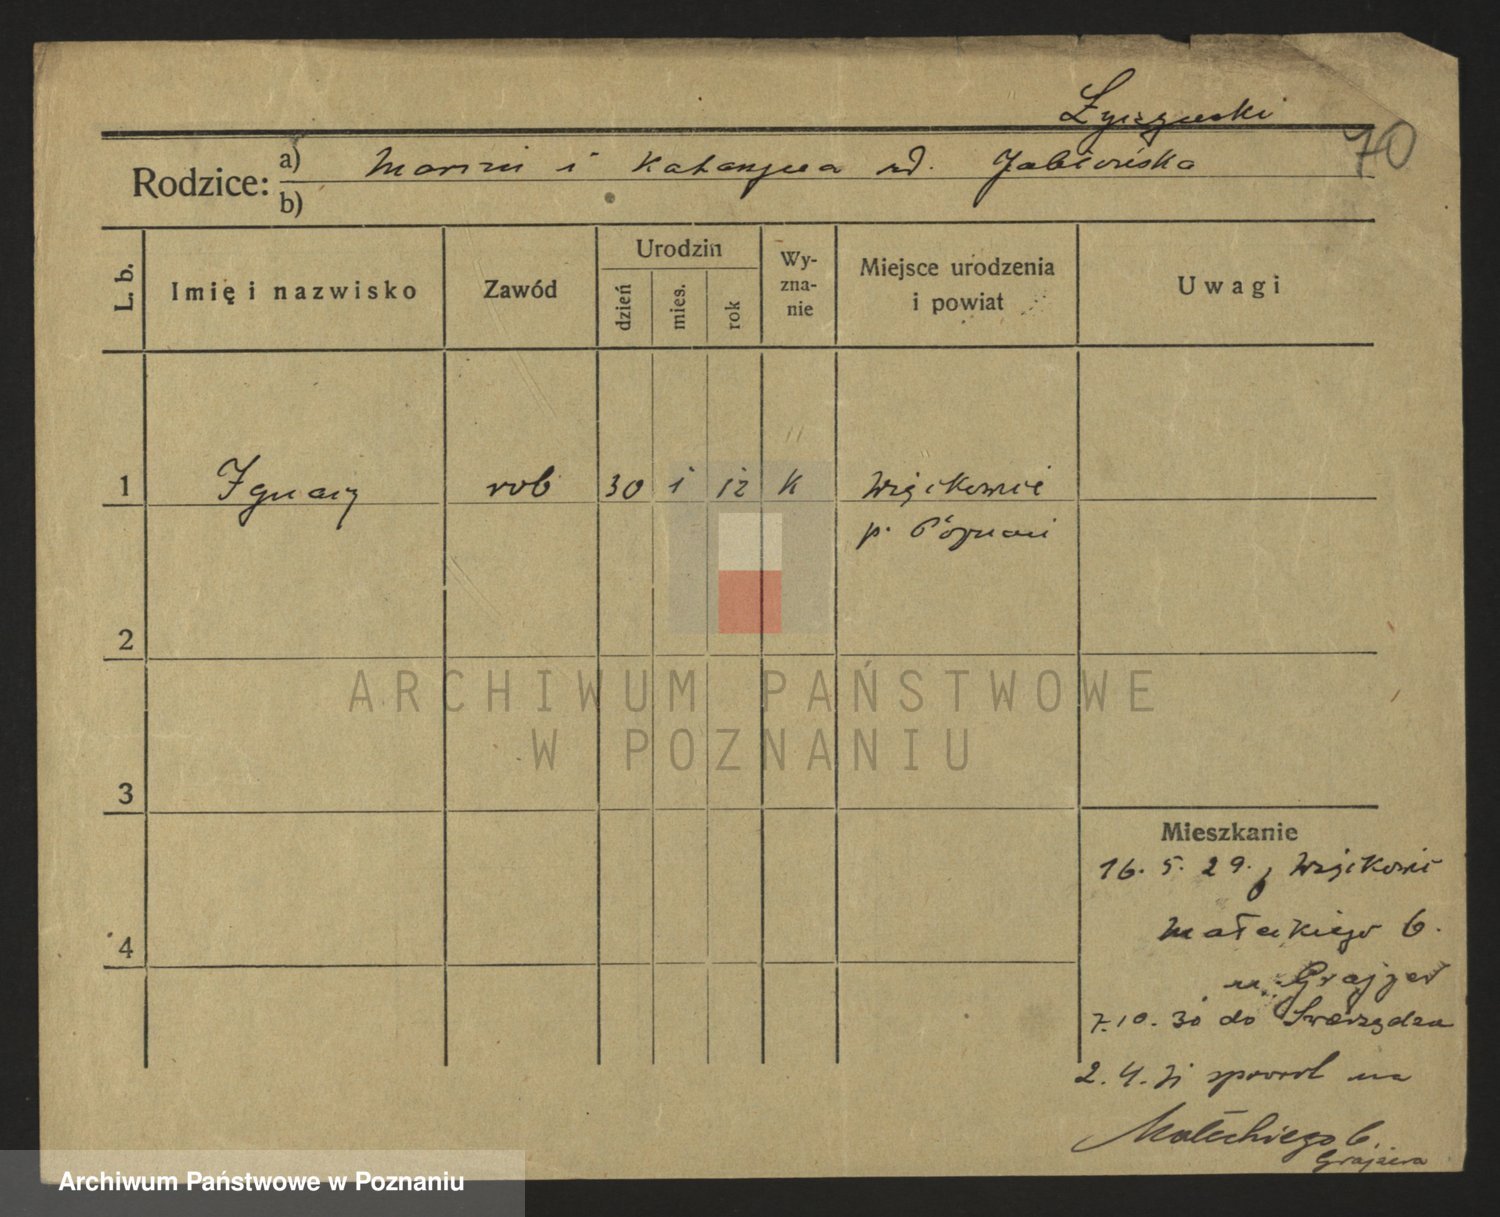 Łyczyński
70
Rodzice: a) Marcin i Katarzyna ur. Jabłońska
b)
L. b. Imię i nazwisko Zawód Urodzin dzień mies. rok Wy-zna-nie Miejsce urodzenia i powiat Uwagi
1 Ignacy rob 30 1 12 k Więckowice
p. Poznań
2
ARCHIWUM PAŃSTWOWE
W POZNANIU
3
Mieszkanie
16. 5. 29. z Więckowic
Małeckiego 6.
u Grajzer
4
7.10. 30 do Swarzędza
2. 4. 31 sprowdz na
Małeckiego 6.
Grajzera
Archiwum Państwowe w Poznaniu